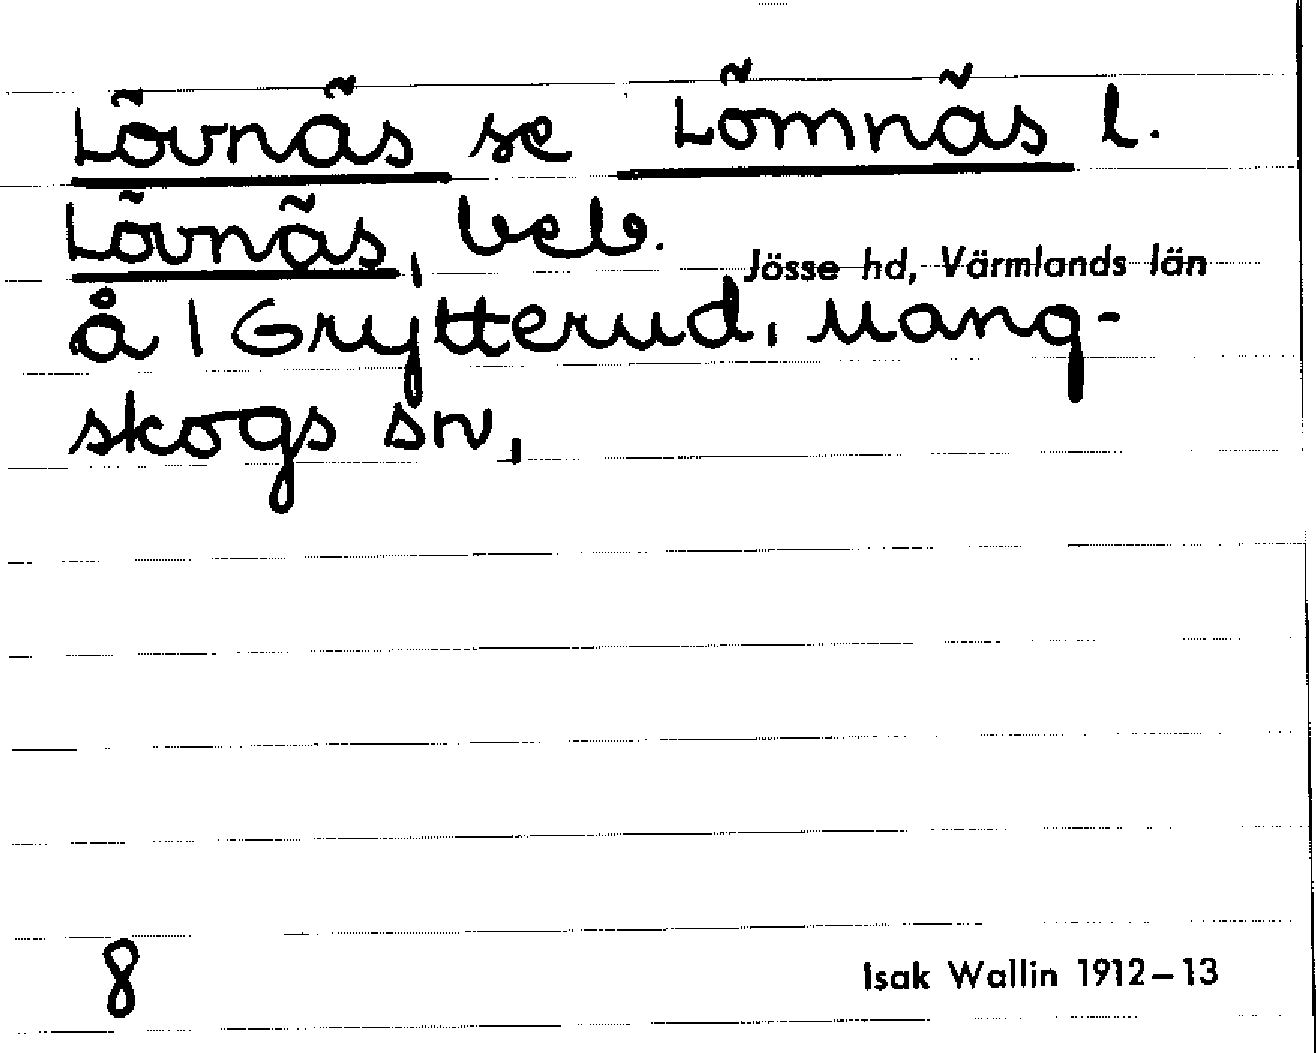 Lövnäs se Lömnäs l.
Lövnäs, beb.
Jösse hd, Värmlands län
å 1 Grytterud, Mang-
skogs sn,
8
Isak Wallin 1912–13